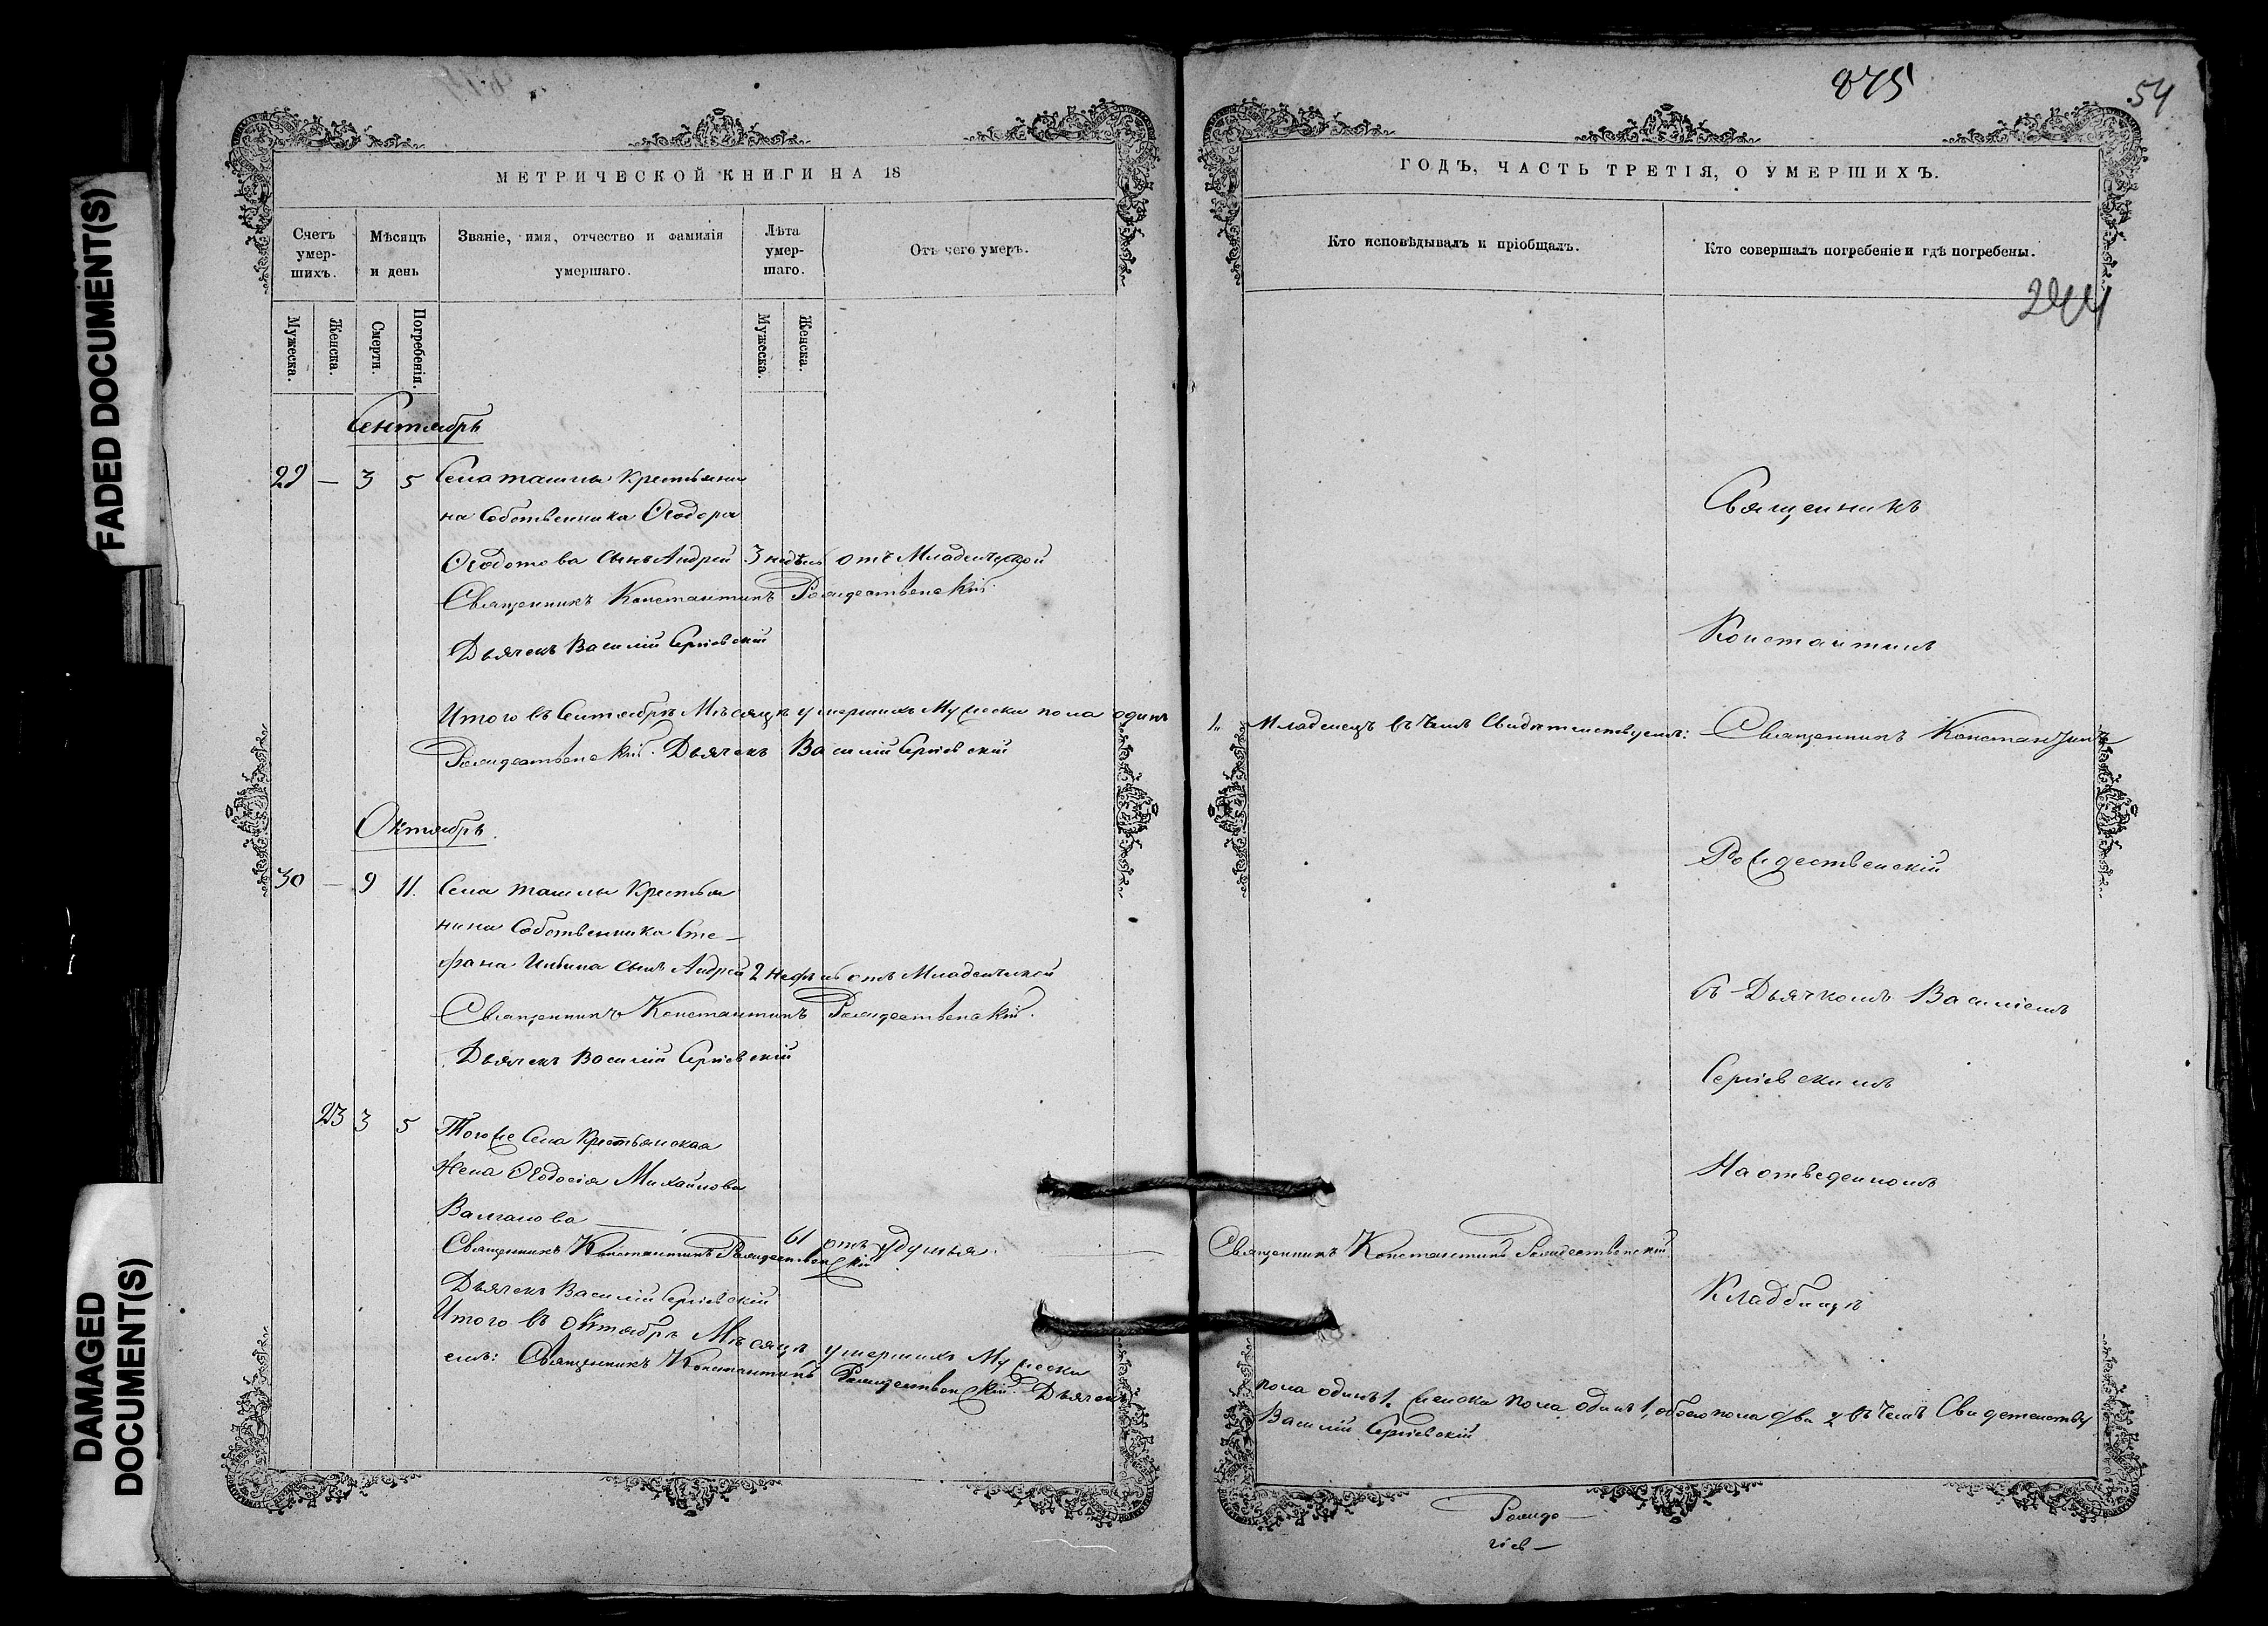 FADED DOCUMENT(S)
DAMAGED
DOCUMENT(S)
МЕТРИЧЕСКОЙ КНИГИ НА 18
Счетъ
умер-
шихъ.
Мѣсяцъ
и день
Званіе, имя, отчество и фамилія
умершаго.
Лѣта
умер-
шаго.
Отъ чего умеръ.
Мужеска.
Женска.
Смерти.
Погребенія.
Мужеска.
Женска.
Сентябрь
29 — 3 5 Села Ташлы Крестьяни
на Собственника Ѳеодора
Ѳеодотова сынъ Андрей 3 недѣль отъ Младенческой
Священникъ Константинъ Рождественскій
Дьячекъ Василій Сергіевскій
Итого въ Сентябрѣ Мѣсяцѣ умершихъ Мужеска пола одинъ
Рождественскій. Дьячекъ Василій Сергіевскій
Октябрь.
30 — 9 11. Села Ташлы Крестья
нина Собственника Сте-
фана сынъ Андрей 2 недѣль отъ Младенческой
Священникъ Константинъ Рождественскій.
Дьячекъ Василій Сергіевскій
23 3 5 Тогоже Села Крестьянская
Жена Ѳеодосія Михайлова
61 отъ удушья.
Священникъ Константинъ Рождественскій
Дьячекъ Василій Сергіевскій
Итого въ Октябрѣ Мѣсяцѣ умершихъ Мужеска
емъ: Священникъ Константинъ Рождественскій. Дьячекъ
875
54
ГОДЪ, ЧАСТЬ ТРЕТІЯ, О УМЕРШИХЪ.
Кто исповѣдывалъ и пріобщалъ.
Кто совершалъ погребеніе и гдѣ погребены.
244
Священникъ
Константинъ
1. Младенецъ въ чемъ Свидѣтельствуемъ: Священникъ Константинъ
Рождественскій
съ Дьячкомъ Василіемъ
Сергіевскимъ
На отведенномъ
Священникъ Константинъ Рождественскій
Кладбищѣ
пола одинъ 1, женска пола одинъ 1, обоего пола два 2 въ чемъ Свидетельству
Василій Сергіевскій
Рожде—
гіев—